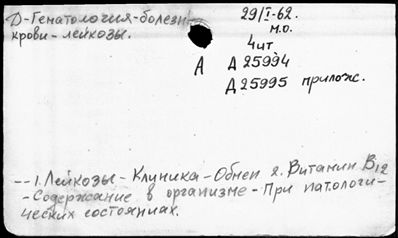 Д-Гематология-болезни
крови-лейкозы.
29/I-62.
м.о.
4шт
А Д 25994
Д 25995 прилож.
--1. Лейкозы- Клиника-Обмен я. Витамин B12
-Содержание в организме-При патологи-
ческих состояниях.